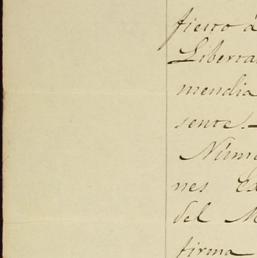 fiesto á
Liberta
mendia
sente.
Núme
nes Ex
del M
firma